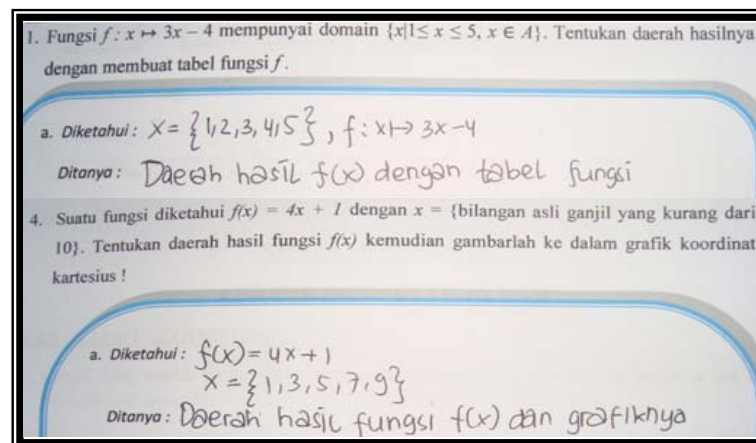 1. Fungsi f : x ↦ 3x – 4 mempunyai domain {x|1≤ x ≤ 5, x ∈ A}. Tentukan daerah hasilnya
dengan membuat tabel fungsi f.
a. Diketahui : X = {1,2,3,4,5} , f : x ↦ 3x -4
Ditanya : Daerah hasil f(x) dengan tabel fungsi
4. Suatu fungsi diketahui f(x) = 4x + 1 dengan x = {bilangan asli ganjil yang kurang dari
10}. Tentukan daerah hasil fungsi f(x) kemudian gambarlah ke dalam grafik koordinat
kartesius !
a. Diketahui : f(x) = 4x + 1
X = {1, 3, 5, 7, 9}
Ditanya : Daerah hasil fungsi f(x) dan grafiknya